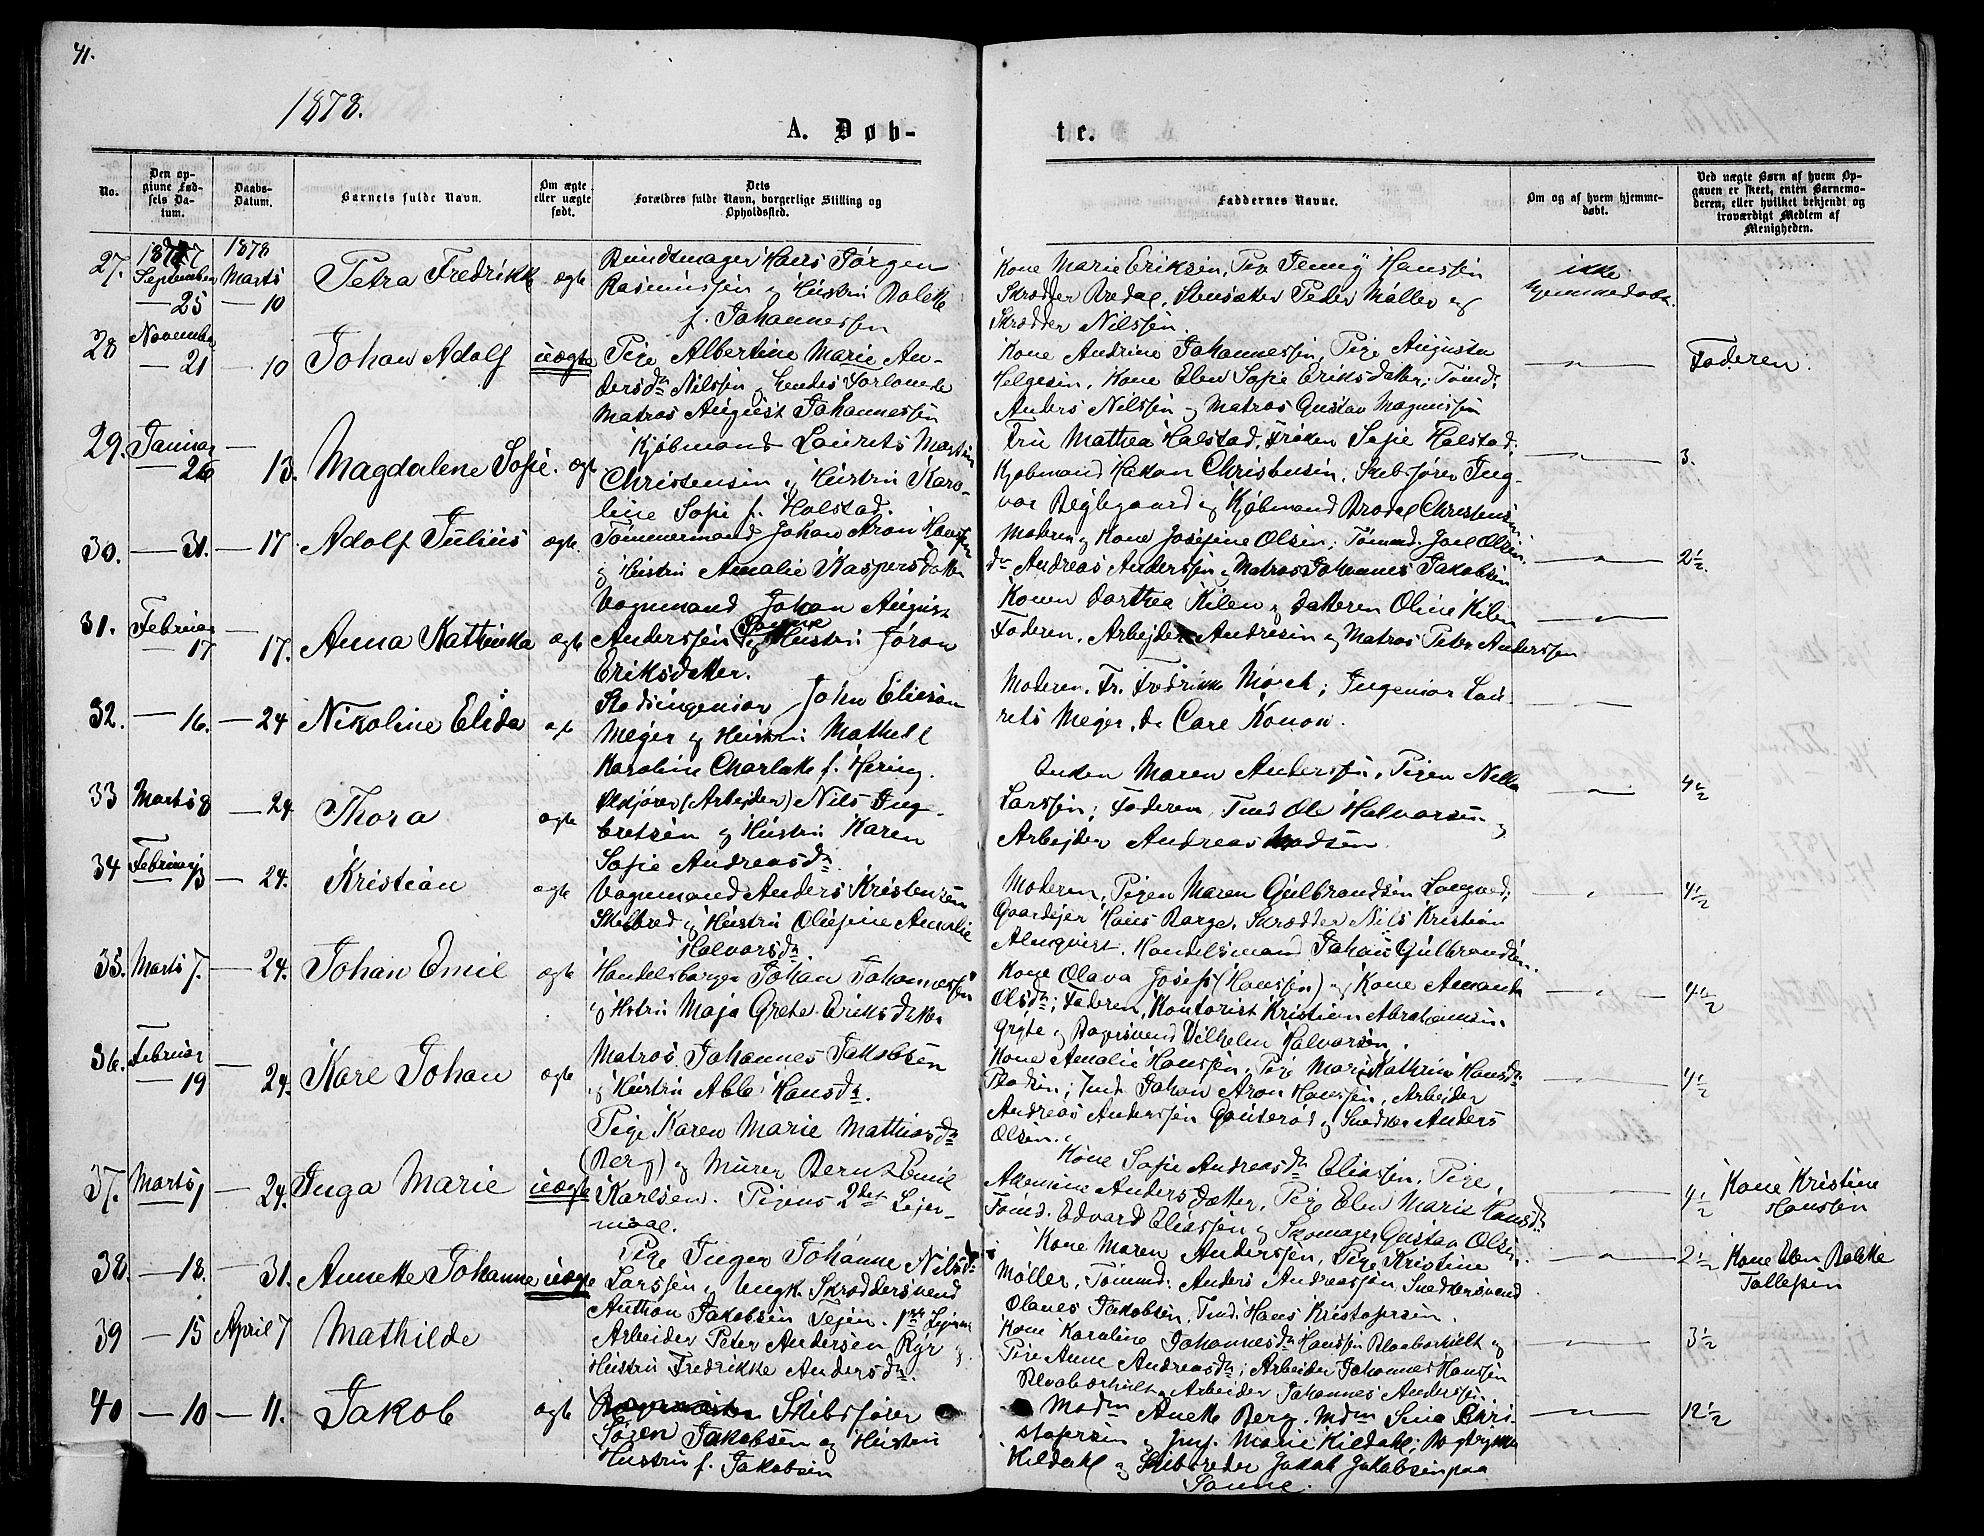 41.
1878.
A. Døb-
te.
No.
Den op-
givne Fød-
sels Da-
tum.
Daabs-
Datum.
Barnets fulde Navn.
Om ægte
eller uægte
født.
Dets
Forældres fulde Navn, borgerlige Stilling og
Opholdssted.
Faddernes Navne.
Om og af hvem hjemme-
døbt.
Ved uægte Børn af hvem Op-
gaven er skeet, enten Barnemo-
deren, eller hvilket bekjendt og
troværdigt Medlem af
Menigheden.
27.
1877
September
— 25
1878
Marts
— 10
Petra Fredrikke
ægte
Hans Jørgen
Rasmussen og Hustru
f. Johannessen
Kone Marie Eriksen, Pige Jenny Hanssen
Skrædder Peder Møller og
Skrædder Nilssen.
ikke
hjemmedøbt.
28
November
— 21
— 10
Johan Adolf
uægte
Pige Albertine Marie An-
dersdr Nilssen og hendes Forlovede
Matros August Johannessen
Kone Andrine Johannessen, Pige Augusta
Helgesen, Kone Elen Sofie Eriksdatter; Tømd.
Anders Nilssen og Matros Gustav Magnussen
— " —
Faderen.
29.
Januar
— 26
— 13.
Magdalene Sofie.
ægte
Kjøbmand Laurits Martin
Christensen og Hustru Karo-
line Sofie f. Holstad.
Fru Mathea Holstad, Frøken Sofie Holstad;
Kjøbmand Hakon Christensen, Skibsfører Ing-
var Bøglegaard og Kjøbmand Brodal Christensen
— " —
3.
30.
— 31.
— 17.
Adolf Julius
ægte
Tømmermand Johan Aron Hanssen
og Hustru Amalie Kaspersdatter
Moderen og Kone Josefine Olsen; Tømmd. Joel Olsen
do Andreas Anderssen og Matros Johannes Jakobsen
— " —
2½.
31.
Februar
— 17
— 17.
Anna Kathinka
ægte
Vognmand Johan August
Anderssen og Hustru Jøran
Eriksdatter.
Konen Dorthea Kilen og Datteren Oline Kilen
Faderen, Arbejder Andresen og Matros Peter Anderssen
— " —
32.
— 16.
— 24
Nikoline Elida
ægte
Stadsingeniør John Eliesen
Meger og Hustru Mathell
Karoline Charlotte f. Hering.
Moderen, Fr. Fredrikke Mørch; Ingeniør Lau-
rits Meger, do Carl Konow.
— " —
33
Marts 8
— 24
Thora
ægte
(Arbejder) Nils Ing-
bretsen og Hustru Karen
Sofie Andreasdr.
Enken Maren Anderssen, Pigen Nella
Larssen; Faderen, Tmd Ole Halvorsen og
Arbejder Andreas Madsen.
— " —
4½
34
Februar
— 13
— 24.
Kristian
ægte
Vognmand Anders Kristensen
og Hustru Olefine Amalie
Halvorsdr.
Moderen, Pigen Maren Gulbrandsen
Gaardejer Hans Borge, Skrædder Nils Kristian
Almqvist, Handelsmand Johan Gulbrandsen.
— " —
4½
35.
Marts 7.
— 24.
Johan Emil
ægte
Handelsborger Johan Johannessen
og Hstru Maja Grete Eriksdatter
Kone Olava Josefs (Hanssen) og Kone Amanda
Olsdr; Faderen, Kontorist Kristian Abrahamsen
og Vilhelm Halvorsen.
— " —
4½
36.
Februar
— 19
— 24.
Kare Johan
ægte
Matros Johannes Jakobsen
og Hustru Abla Hansdr.
Kone Amalie Hanssen, Pige Mari Kathrine Hansdr
Tmd. Johan Aron Hanssen, Arbejder
Andreas Anderssen og Snedker Anders
Olsen.
— " —
4½
37.
Marts 1
— 24.
Inga Marie
uægte
Pige Karen Marie Mathiasdr
(Berg) og Murer Bernt Emil
Karlsen. Pigens 2det Lejer-
maal.
Kone Sofie Andreasdr Eliassen, Pige
Andersdatter, Pige Elen Marie Hansdr.
Tømd. Edvard Eliassen og Skomager Gustav Olsen.
— " —
4½
Kone Kristine
Hanssen
38.
— 18.
— 31.
Annette Johanne
uægte
Pige Inger Johanne Nilsdr
Larssen og Ungk. Skræddersvend
Anthon Jakobsen Tejen. 1ste Lejerm.
Kone Maren Anderssen, Pige Kristine
Møller, Tømmd: Anders Andreassen, Snedkersvend
Olaves Jakobsen, Tmd. Hans Kristofersen.
— " —
2½
Kone Elen Bolette
Tollefsen
39
— 15
April 7
Mathilde
Arbeider Peter Andersen Ryr og
Hustru Fredrikke Andersdr.
Kone Karoline Johannesdr Hanssen og
Pige Anne Andreasdr; Arbeider Johannes Hanssen
Arbeider Johannes Anderssen
— " —
3½
40
— 10
— 11.
Jakob
ægte
Skibsfører
Søren Jakobsen og Hustru
Hustru f. Jakobsen
Madm Anette Berg, Mdm Sina Kri-
stofersen og Jmf. Marie Kildahl;
Kildahl og Skibsreder Jakob Jakobsen paa
Sanne.
— " —
12½